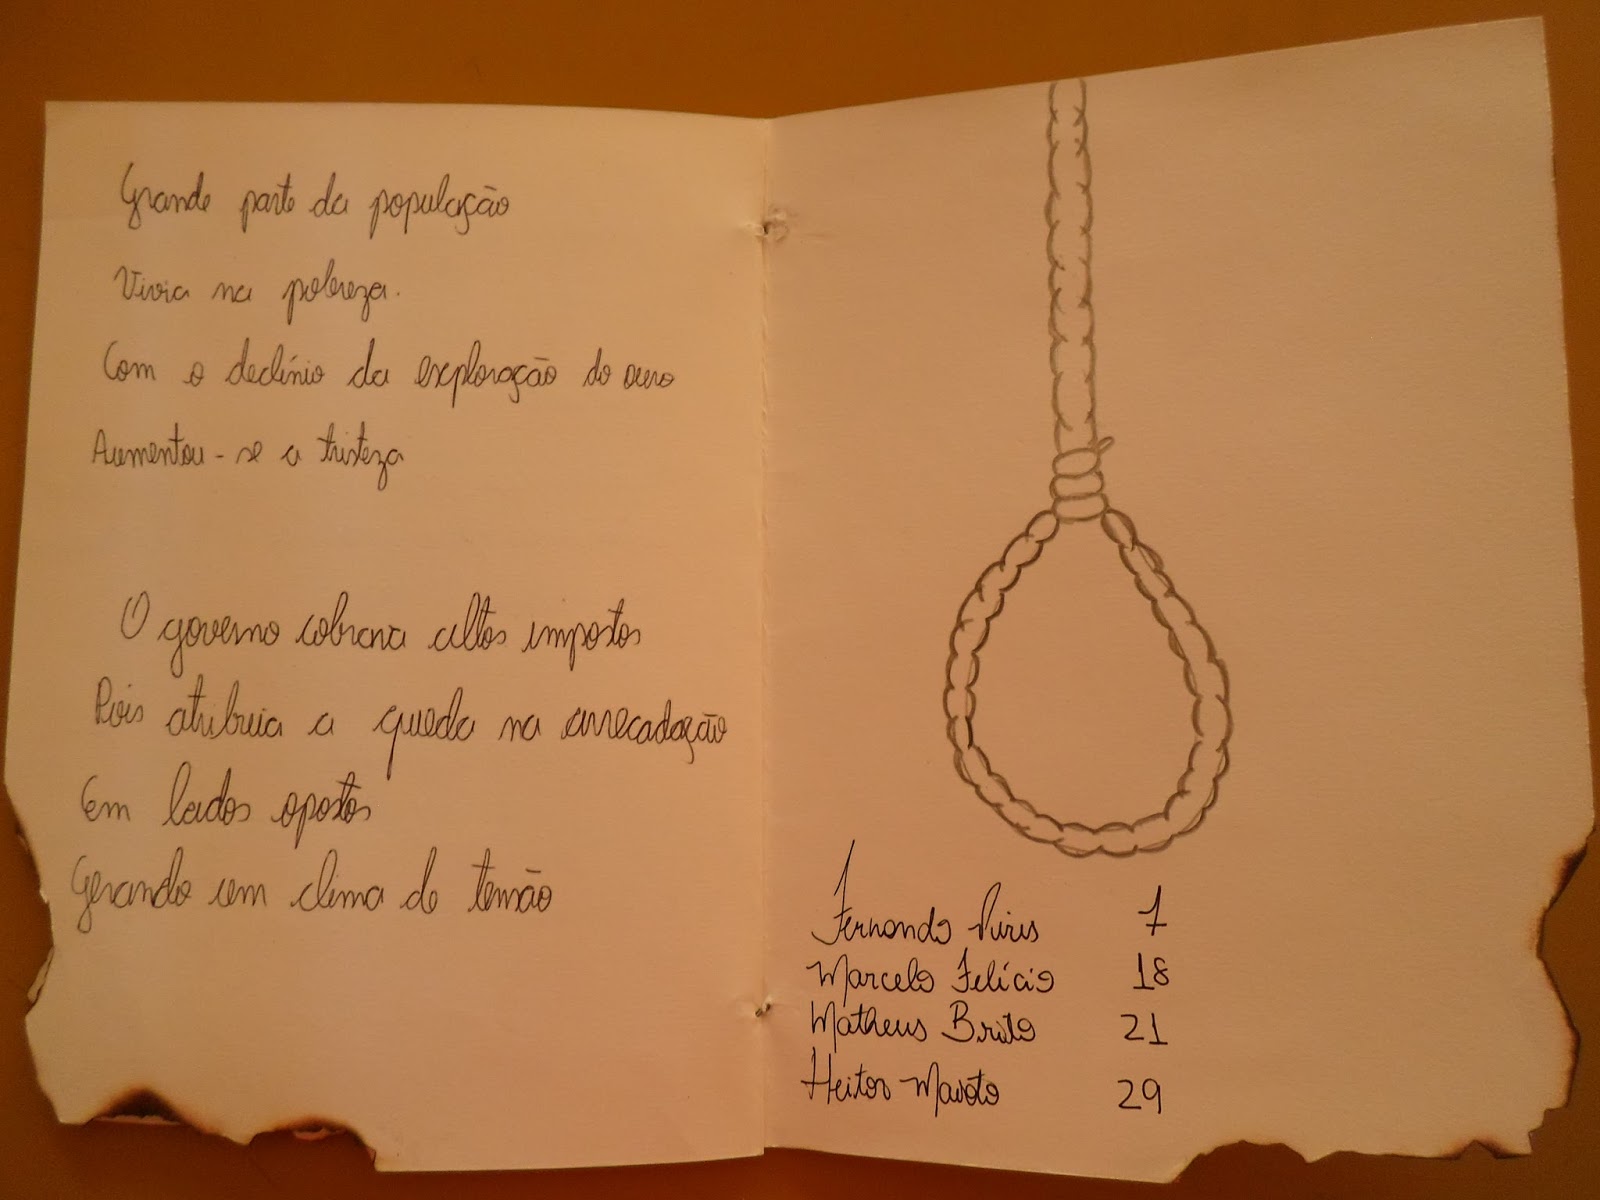 Grande parte da população
Vivia na pobreza.
Com o declínio da exploração do ouro
Aumentou-se a tristeza
O governo cobrava altos impostos
Pois atribuia a queda na arrecadação
Em lados opostos
Gerando um clima de tensão
Fernando Piris 7
Marcelo Felício 18
Matheus Brito 21
Heitor 29